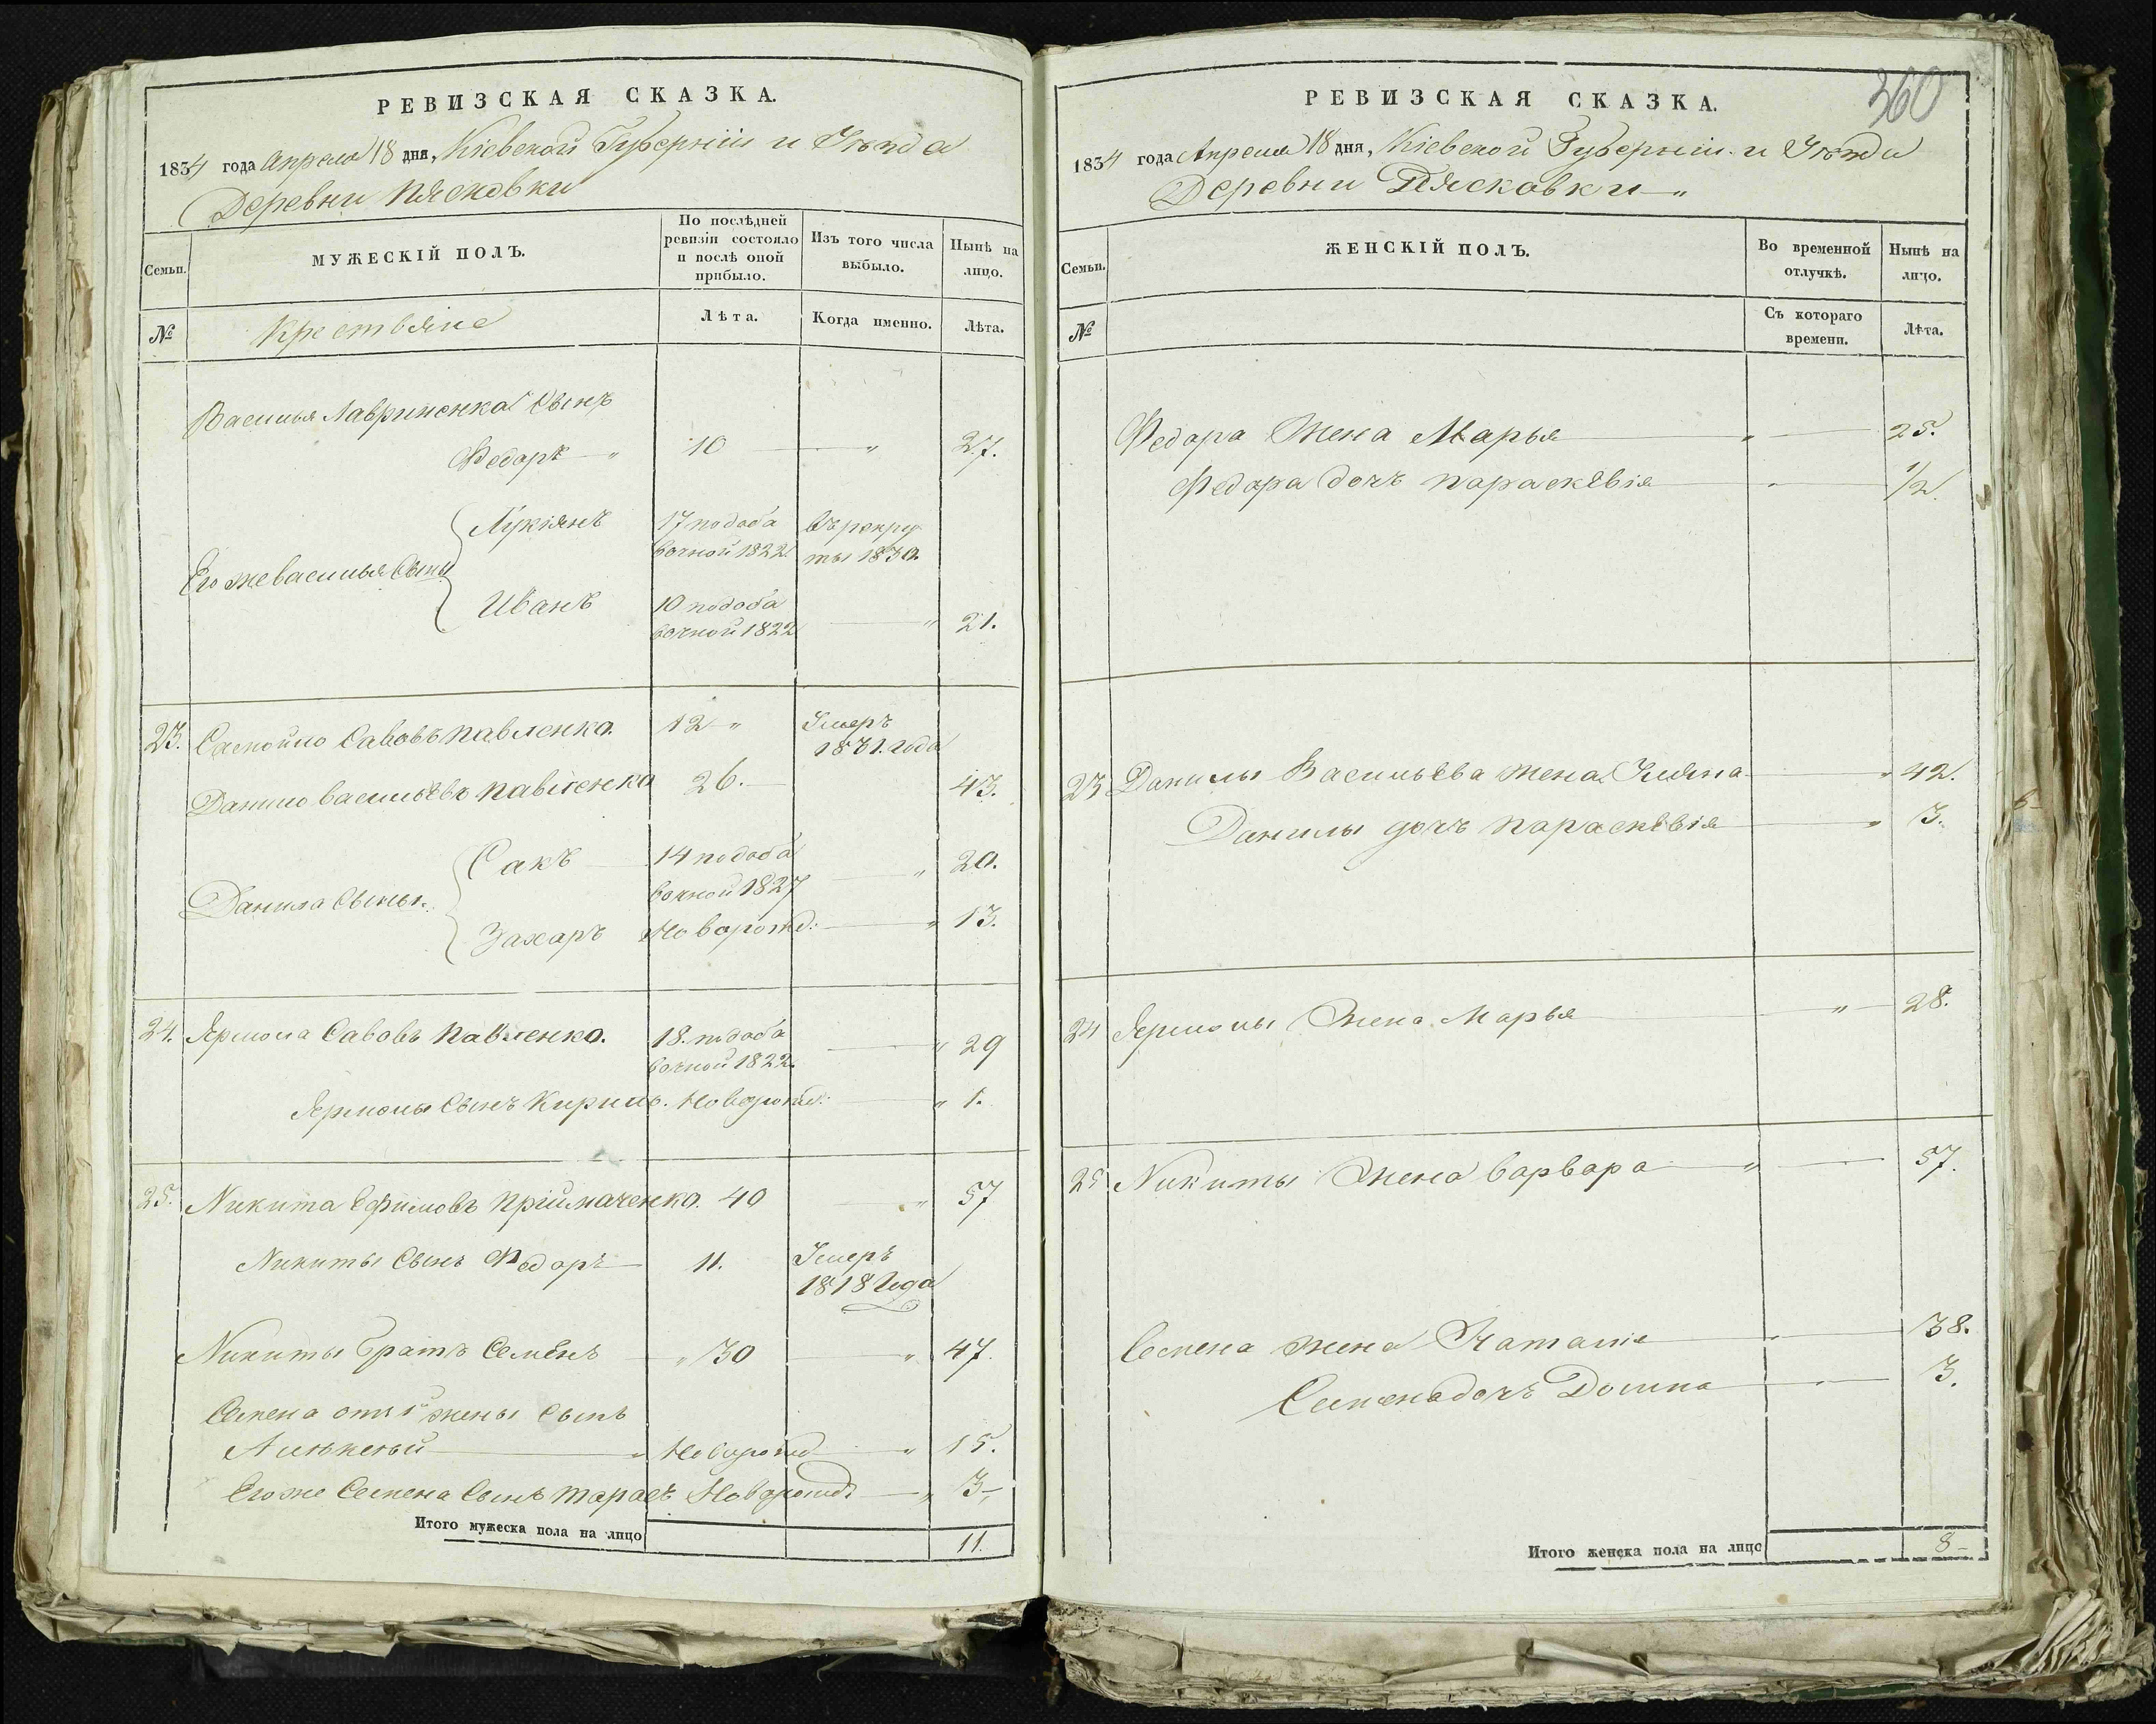 РЕВИЗСКАЯ СКАЗКА.
1834 года Апреля 18 дня, Кіевской Губерніи и Уѣзда
Деревни Пясковки
Семьи. МУЖЕСКІЙ ПОЛЪ. По послѣдней ревизіи состояло и послѣ оной прибыло. Изъ того числа выбыло. Нынѣ на лицо.
№ Крестьяне Лѣта. Когда именно. Лѣта.
Василья Лавриненка Сынъ
Федоръ — " 10 — " 27.
Его же василья Сыны
Лукіянъ 17 по доба вочной 1822 Въ рекру ты 1830.
Иванъ 10 по доба вочной 1822 — " 21.
23. Савовъ павленко. 12 " Умеръ 1831. года
Данило васильевъ павленко 26. — 43.
Данила Сыны.
Сакъ 14 по доба вочной 1827 — " 20.
Захаръ Новорожд: — " 13.
24. Ярмола Савовъ павленко. 18. по доба вочной 1822. — " 29
Ярмолы Сынъ Кирило. Новорожд: — " 1.
25. Никита Ефимовъ пріймаченко. 40 — " 57
Никиты Сынъ Федоръ — 11. Умеръ 1818 Года
Никиты братъ Семенъ — " 30 — " 47.
Семена отъ 1й жены Сынъ
Алѣксѣй — " Новорожд — " 15.
Его же Семена Сынъ тарасъ Новорожд — " 3 —
Итого мужеска пола на лицо 11.
360
РЕВИЗСКАЯ СКАЗКА.
1834 года Апреля 18 дня, Кіевской Губерніи и Уѣзда
Деревни Пясковки — "
Семьи. ЖЕНСКІЙ ПОЛЪ. Во временной отлучкѣ. Нынѣ на лицо.
№ Съ котораго времени. Лѣта.
Федора Жена Марья — " — 25.
Федора дочъ параскевія — " — 1/2.
23 Данилы Васильева жена Уляна — " 42.
Данилы дочъ параскевія — " 3.
24 Ярмолы Жена Марья — " — 28.
25 Никиты Жена варвара — " — 57.
Семена жена Наталія — " — 38.
Семена дочъ Домна — " — 3.
Итого женска пола на лицо 8 —